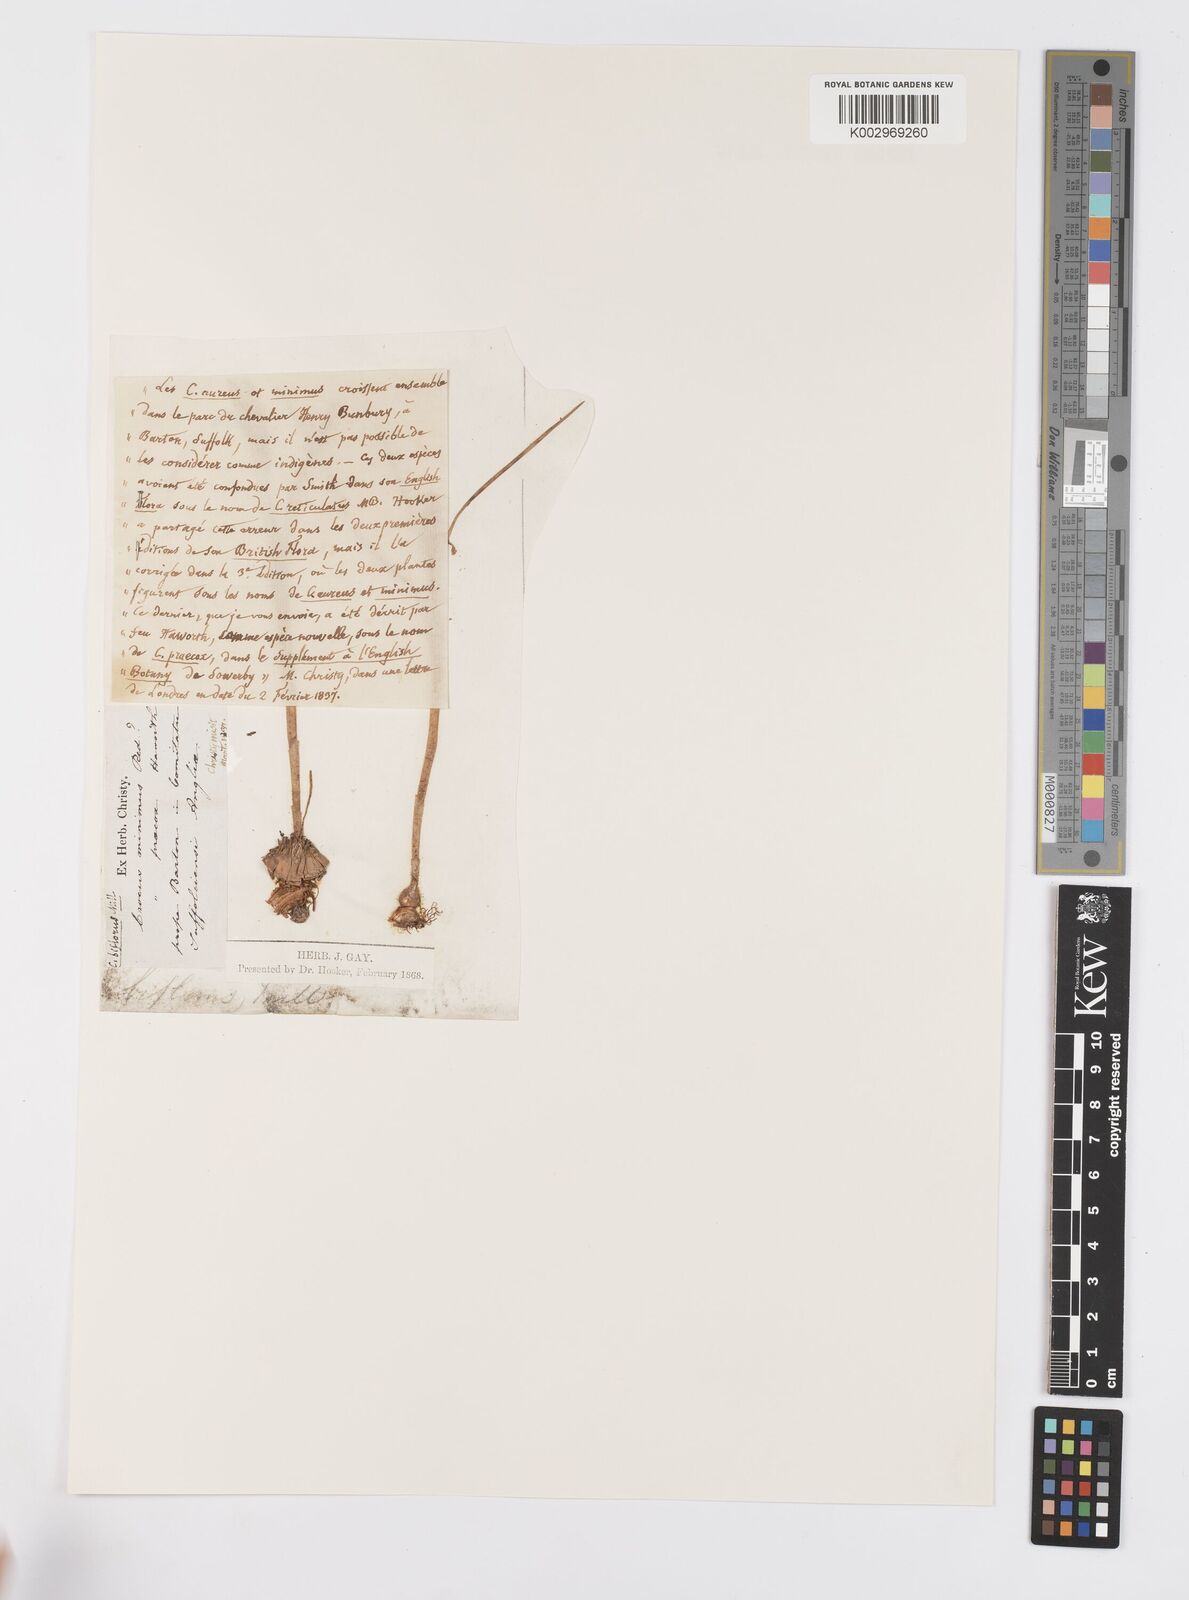 ROYAL BOTANIC GARDENS KEW
K002969260
" Les C. aureus et minimus croissent ensemble
" dans le parc du chevalier Henry Bunbury, à
" Barton, Suffolk, mais il n'est pas possible de
" les considérer comme indigènes. — Ces deux espèces
" avoient été confondues par Smith dans son English
" Flora sous le nom de C. reticulatus MB. Hooker
" a partagé cette erreur dans les deux premières
" éditions de son British Flora, mais il l'a
" corrigée dans la 3e édition, où les deux plantes
" figurent sous les noms de C. aureus et minimus.
" Ce dernier, que je vous envoie, a été décrit par
" feu Haworth, comme espèce nouvelle, sous le nom
" de C. praecox, dans le Supplément à l'English
" Botany de Sowerby " M. Christy, dans une lettre
de Londres en date du 2 Février 1837.
C. biflorus Mill.
Ex Herb. Christy.
Crocus minimus Red.?
" præcox Haworth
prope Barton in Comitatu
Suffolciensi Angliæ
HERB. J. GAY.
Presented by Dr. Hooker, February 1868.
biflorus, Mill.
inches
Density
Don Williams
centimeters
M000827
Kew
Royal Botanic Gardens
copyright reserved
0 1 2 3 4 5 6 7 8 9 10
cm